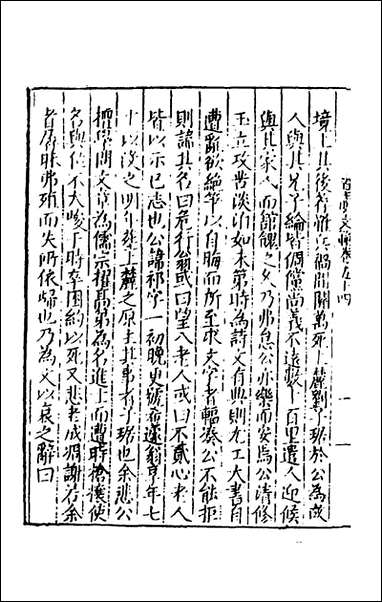 境上其後皆罹兵禍間關萬死上麓劉子琚於公為故
人與其兄子綸皆倜儻尚義不遠數十百里遣人迎候
與其家人而館餼之久乃弗怠公亦樂而安焉公清修
玉立攻苦淡泊如未第時為詩文有典則尤工大書自
遭亂欲絕筆以自晦而所至求文字者輻湊公不能拒
則諱其名曰危行翁或曰望八老人或曰不貳心老人
皆以示已志也公諱祁字一初晚更號希蘧翁享年七
十以沒之明年葬上麓之原主其事者子琚也余悲公
擅學問文章為儒宗擢高第為名進士而遭時搶攘使
名與位不大峻于時卒困約以死又悲老成凋謝若余
者質昧弗殖而失所依歸也乃為文以哀之辭曰